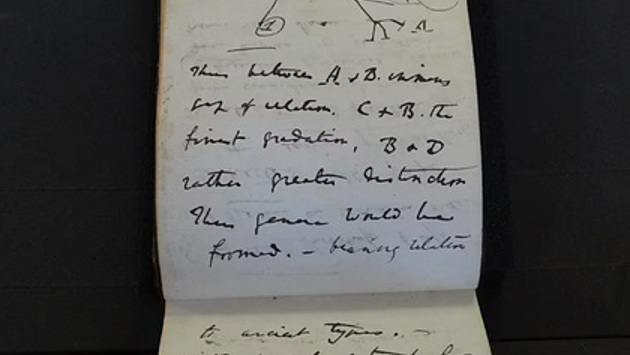 1
A
Thus between A & B. immens
gap of relation. C & B. the
finest gradation, B & D
rather greater distinction
Thus genera would be
formed. — bearing relation
to ancient types. —